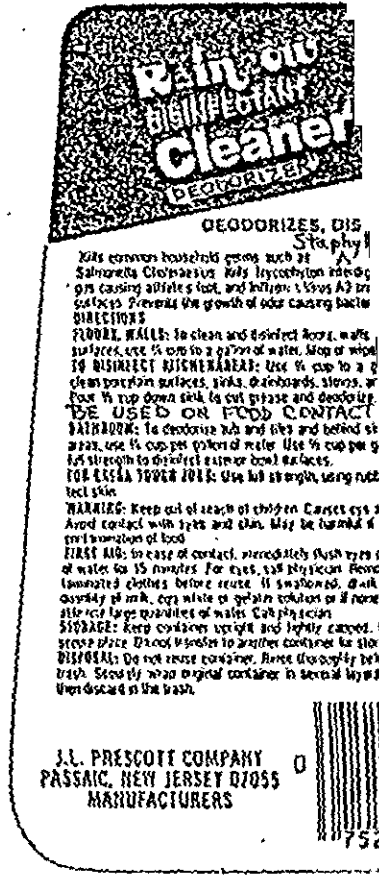 Rain
DISINFECTANT
Cleaner
DEODORIZER
DEODORIZES, DIS
Staphyl
Kills common household germs such as
Salmonella Kills
causing athlete's foot, and Virus A2
surfaces. Prevents the growth of odor causing bacter
DIRECTIONS
FLOORS, WALLS: To clean and disinfect floors, walls
surfaces, use ½ cup to a gallon of water. Mop or wipe
TO DISINFECT KITCHEN AREAS: Use ½ cup to a g
clean porcelain surfaces, sinks, drainboards, stoves, ar
Pour ½ cup down sink to cut grease and deodorize.
BE USED ON FOOD CONTACT
BATHROOM: To deodorize tub and tiles and behind
areas, use ½ cup per gallon of water. Use ½ cup per g
full strength to disinfect exterior bowl surfaces.
FOR EXTRA TOUGH JOBS: Use full strength, using rubb
tect skin.
WARNING: Keep out of reach of children. Causes eye
Avoid contact with eyes and skin. May be harmful
contamination of food.
FIRST AID: In case of contact, immediately flush eyes
of water for 15 minutes. For eyes, call physician. Remo
taminated clothes before reuse. If swallowed, drink
quantity of milk, egg white or gelatin solution or if
large quantities of water. Call physician.
STORAGE: Keep container upright and tightly capped.
place. Do not transfer to another container for stor
DISPOSAL: Do not reuse container. Rinse thoroughly
trash. Securely wrap original container in several layers
then discard in the trash.
J.L. PRESCOTT COMPANY
PASSAIC, NEW JERSEY 07055
MANUFACTURERS
0
752